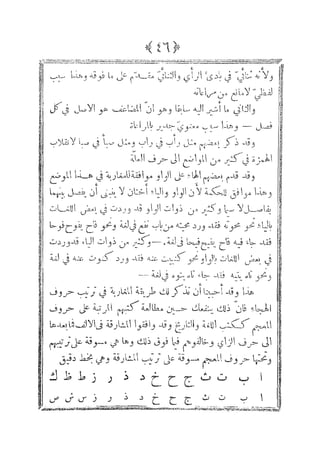 ﴿ ٤٦ ﴾
ولأنه ثنائيّ في بادئ الرأي والثنائيّ مقدم على ما فوقه وهذا سبب
لفظيّ لامانع من مراعاته
والثاني ما أشير اليه سابقا وهو انّ المضاعف هو الاصل في كل
فصل — وهذا سبب معنويّ جدير بالمراعاة
وقد ذكر بعضهم مثل رأب في راب ومثل صبأ في صبا لانقلاب
الهمزة في كثير من المواضع الى حرف العلة
وقد قدم بعضهم الهاء على الواو موافقة للمغاربة في هذا الموضع
وهذا موافق للحكمة لأن الواو والياء أختان لا ينبغي أن يفصل بينهما
بفاصل لا سيما وكثير من ذوات الواو قد وردت في بعض اللغات
بالياء نحو محوته فقد ورد محيته من باب نفع في لغة ونحو فاح يفوح فوحا
فقد جاء فيه فاح يفيح فيحا في لغة. — وكثير من ذوات الياء قد وردت
في بعض اللغات بالواو نحو كنيت عنه فقد ورد كنوت عنه في لغة
ونحو تاه يتيه فقد جاء تاه يتوه في لغة —
هذا وقد أحببنا أن نذكر لك طريقة المغاربة في ترتيب حروف
الهجاء فانّ ذلك ينفعك حين مطالعة كتبهم المرتبة على حروف
المعجم ككتب اللغة والتاريخ وقد وافقوا المشارقة في الالف فما بعدها
الى حرف الزاي وخالفوهم فيما فوق ذلك وها هي مسوقة على ترتيبهم
وتحتها حروف المعجم مسوقة على ترتيب المشارقة وهي بخط دقيق
ا ب ت ث ج ح خ د ذ ر ز ط ظ ك
ا ب ت ث ج ح خ د ذ ر ز س ش ص